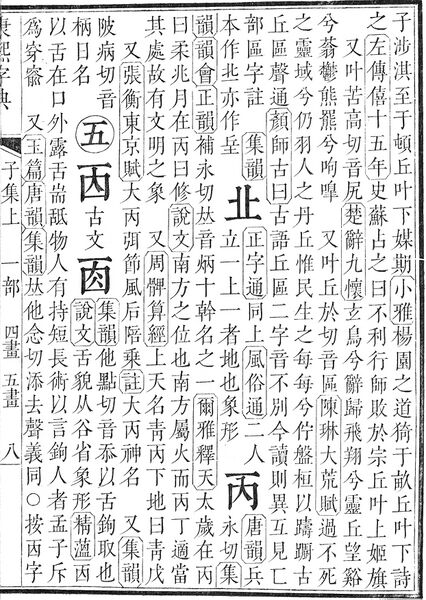 子涉淇至于頓丘叶下媒期小雅楊園之道猗于畝丘叶下詩
之左傳僖十五年史蘇占之曰不利行師敗於宗丘叶上姬旗
又叶苦高切音尻楚辭九懷玄鳥兮辭歸飛翔兮靈丘望谿
兮蓊鬱熊羆兮呴嘷 又叶丘於切音區陳琳大荒賦過不死
之靈域兮仍羽人之丹丘惟民生之每每兮佇盤桓以躊躇古
丘區聲通顏師古曰古語丘區二字音不別今讀則異互見匸
部區字註 集韻
本作北亦作
㐀
正字通同上風俗通二人
立一上一者地也象形
丙
唐韻兵
永切集
韻韻會正韻補永切𠀤音炳十幹名之一爾雅釋天太歲在丙
曰柔兆月在丙曰修說文南方之位也南方屬火而丙丁適當
其處故有文明之象 又周髀算經上天名靑丙下地曰靑戊
又張衡東京賦大丙弭節風后陪乘註大丙神名 又集韻
陂病切音
柄日名
五
㐁
古文
集韻他點切音忝以舌鉤取也
說文舌貌从谷省象形精薀㐁
以舌在口外露舌耑舐物人有持短長術以言鉤人者孟子斥
為穿窬 又玉篇唐韻集韻𠀤他念切添去聲義同○按㐁字
康熙字典 子集上 一部 四畫 五畫 八